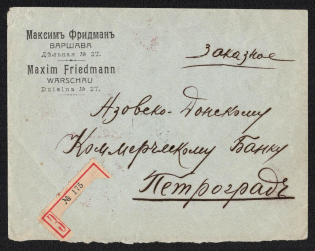 Максимъ Фридманъ
ВАРШАВА
Дѣльная № 27.
Maxim Friedmann
WARSCHAU
Dzielna № 27.
Заказное
Азовско-Донскому
Коммерческому Банку
Петроградъ
№ 175